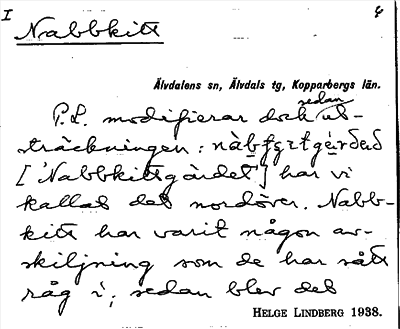 I
4
Nabbkitt
Älvdalens sn, Älvdals tg, Kopparbergs län.
sedan
P.L. modifierar dock ut-
sträckningen:
['Nabbkittgärdet'] har vi
kallat det nordöver. Nabb-
kitt har varit någon av-
skiljning som de har sått
råg i; sedan blev det
HELGE LINDBERG 1938.